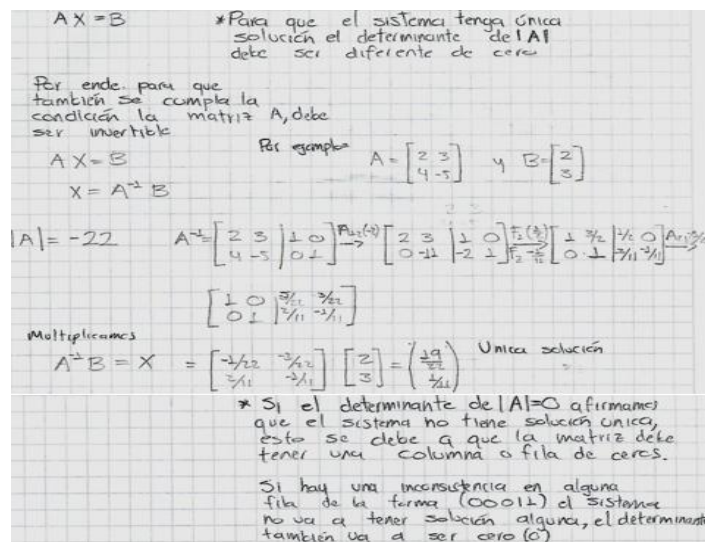 AX=B
*Para que el sistema tenga única
solución el determinante de |A|
debe ser diferente de cero
Por ende para que
también se cumpla la
condición la matriz A, debe
ser invertible
AX=B
X = A⁻¹ B
Por ejemplo A = [2 3 4 -5] y B=[2 3]
|A| = -22
A⁻¹= [2 3 | 1 0 4 -5 | 0 1] → [2 3 | 1 0 0 -11 | -2 1] [1 3/2 | 1/2 0 0 1 | 2/11 -1/11]
[1 0 | 5/22 3/22 0 1 | 2/11 -1/11]
Multiplicamos
A⁻¹B = X = [2/11 -1/11] [2 3] = (19/22 1/11) Unica solución
* Si el determinante de |A|=0 afirmamos
que el sistema no tiene solución unica,
esto se debe a que la matriz debe
tener una columna o fila de ceros.
Si hay una inconsistencia en alguna
fila de la forma (000|1) el sistema
no va a tener solución alguna, el determinant
también va a ser cero (0)